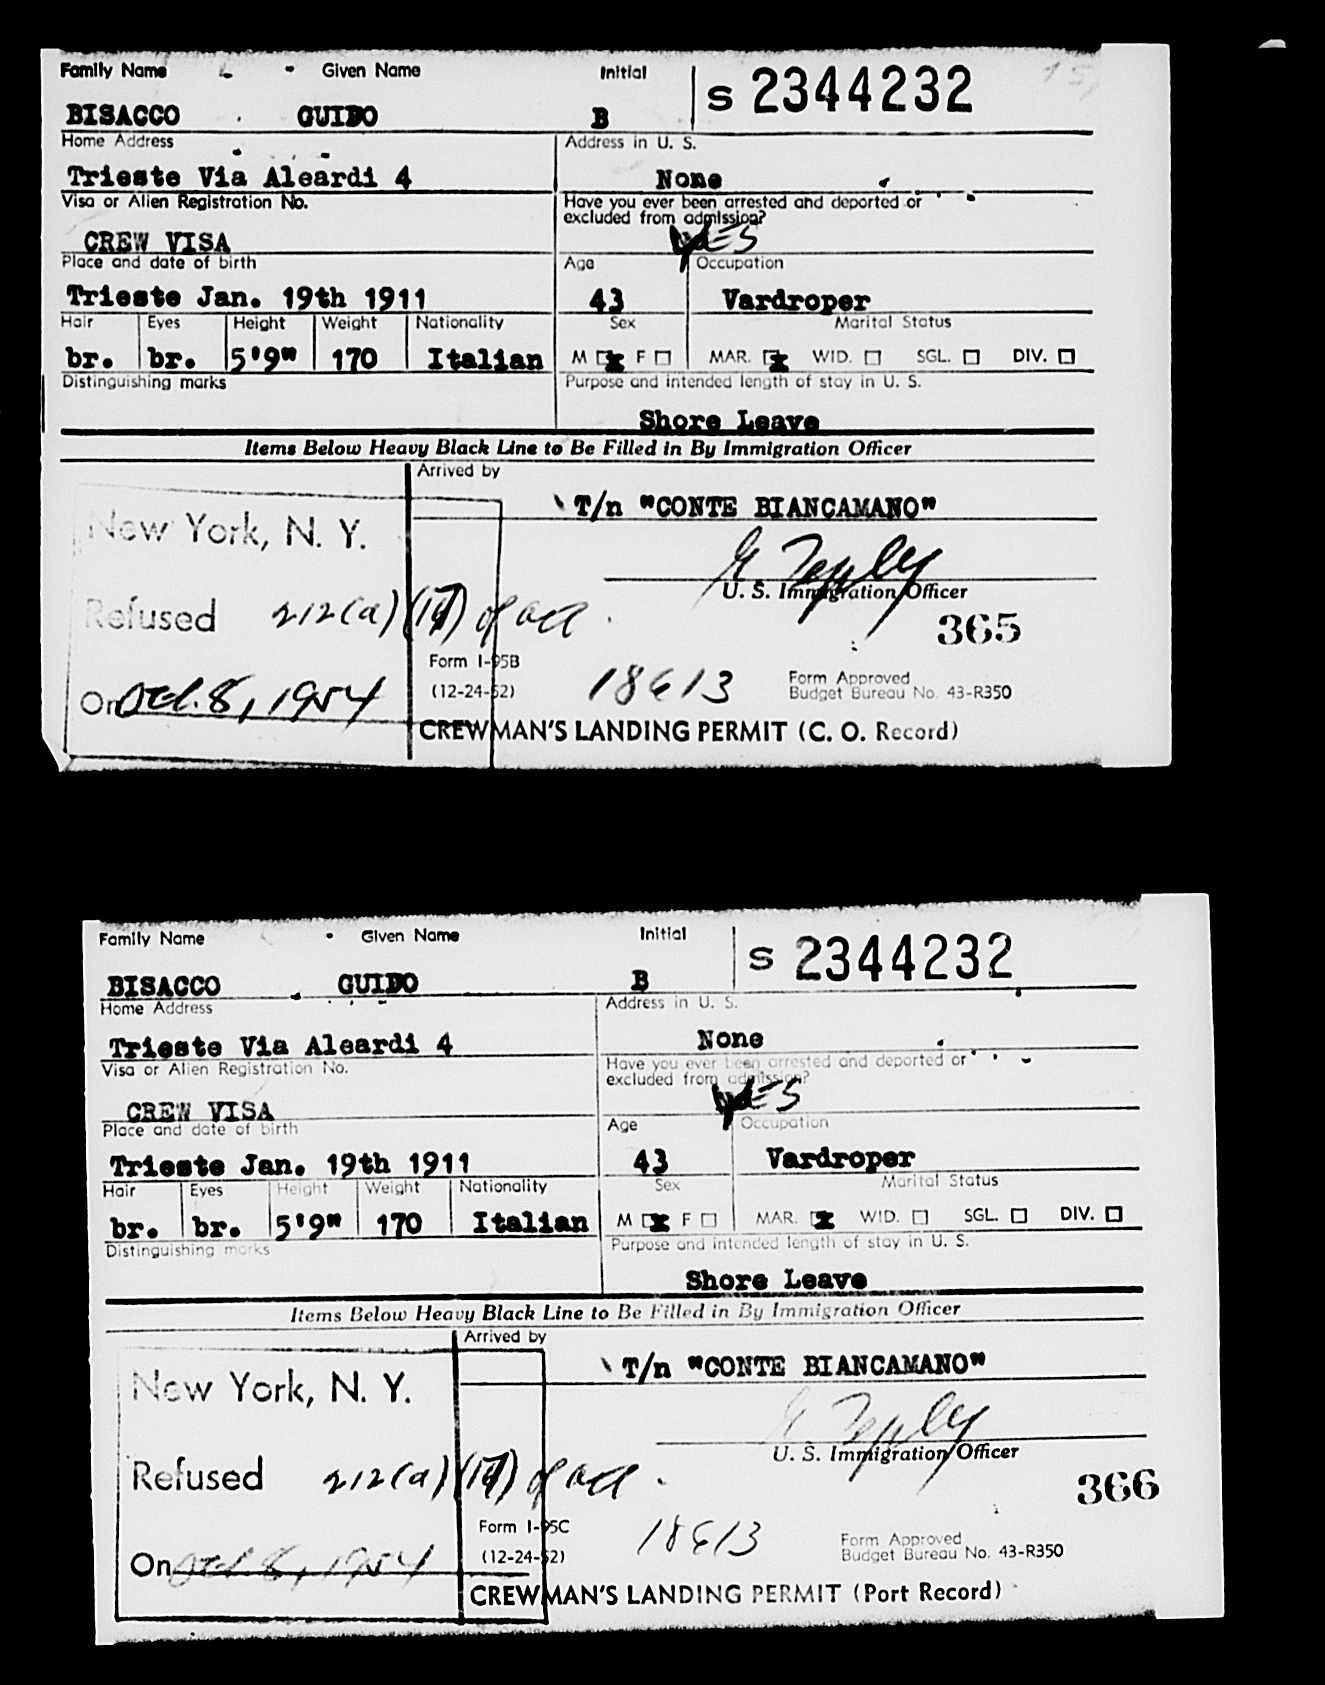 Family Name Given Name Initial S 2344232
BISACCO GUIDO B
Home Address Address in U. S.
Trieste Via Aleardi 4 None
Visa or Alien Registration No. Have you ever been arrested and deported or
excluded from admission?
CREW VISA YES
Place and date of birth Age Occupation
Trieste Jan. 19th 1911 43 Vardroper
Hair Eyes Height Weight Nationality Sex Marital Status
br. br. 5'9" 170 Italian M F MAR. WID. SGL. DIV.
Distinguishing marks Purpose and intended length of stay in U. S.
Shore Leave
Items Below Heavy Black Line to Be Filled in By Immigration Officer
Arrived by
T/n "CONTE BIANCAMANO"
New York, N. Y.
U. S. Immigration Officer
Refused 212(a) of act. 365
Form I-95B
(12-24-52) 18613 Form Approved
Budget Bureau No. 43-R350
On Oct. 8, 1954
CREWMAN'S LANDING PERMIT (C. O. Record)
Family Name Given Name Initial S 2344232
BISACCO GUIDO B
Home Address Address in U. S.
Trieste Via Aleardi 4 None
Visa or Alien Registration No. Have you ever been arrested and deported or
excluded from admission?
CREW VISA YES
Place and date of birth Age Occupation
Trieste Jan. 19th 1911 43 Vardroper
Hair Eyes Height Weight Nationality Sex Marital Status
br. br. 5'9" 170 Italian M F MAR. WID. SGL. DIV.
Distinguishing marks Purpose and intended length of stay in U. S.
Shore Leave
Items Below Heavy Black Line to Be Filled in By Immigration Officer
Arrived by
T/n "CONTE BIANCAMANO"
New York, N. Y.
U. S. Immigration Officer
Refused 212(a) of act. 366
Form I-95C
(12-24-52) 18613 Form Approved
Budget Bureau No. 43-R350
On Oct. 8, 1954
CREWMAN'S LANDING PERMIT (Port Record)